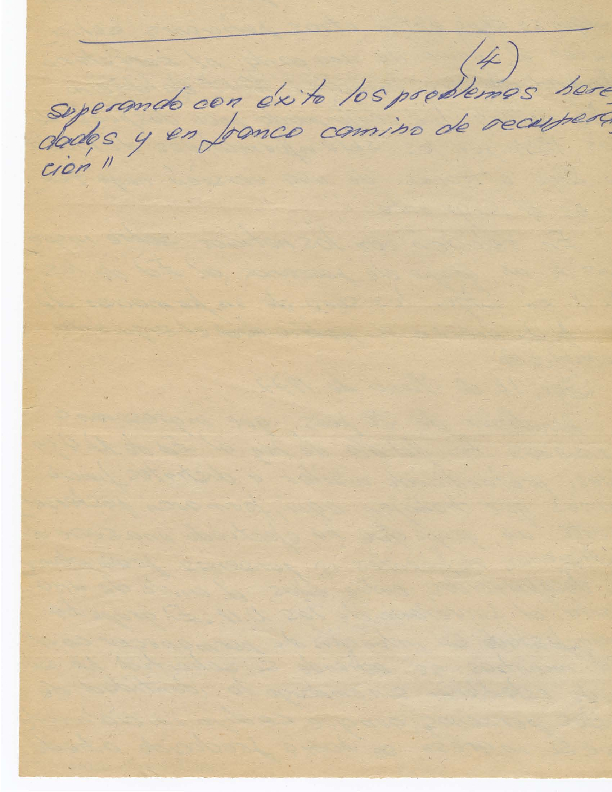 (4)
superando con éxito los problemas here
dados y en franco camino de recupera
ción"